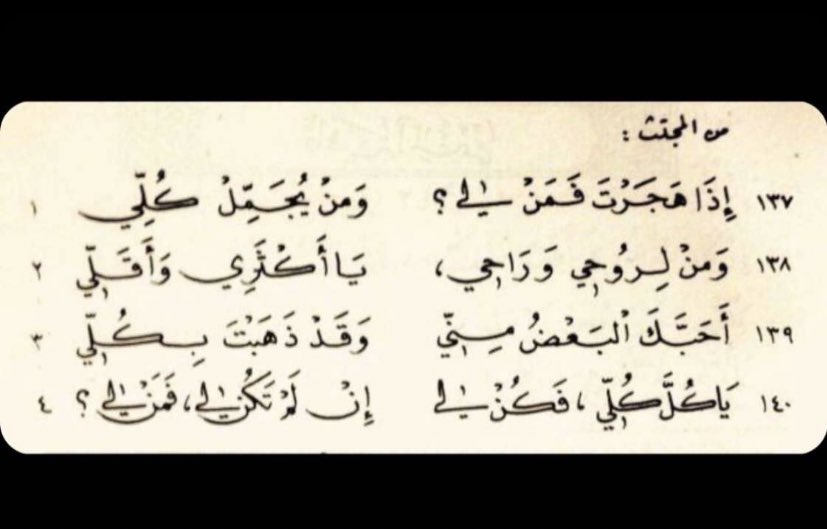 من المجتث :
١٣٧ إِذَا هَجَرْتَ فَمَنْ لِي ؟ وَمَنْ يُجَمِّلُ كُلِّي ١
١٣٨ وَمَنْ لِرُوحِي وَرَاحِي ، يَا أَكْثَرِي وَأَقَلِّي ٢
١٣٩ أَحَبَّكَ الْبَعْضُ مِنِّي وَقَدْ ذَهَبْتَ بِكُلِّي ٣
١٤٠ يَا كُلَّ كُلِّي ، فَكُنْ لِي إِنْ لَمْ تَكُنْ لِي ، فَمَنْ لِي ؟ ٤